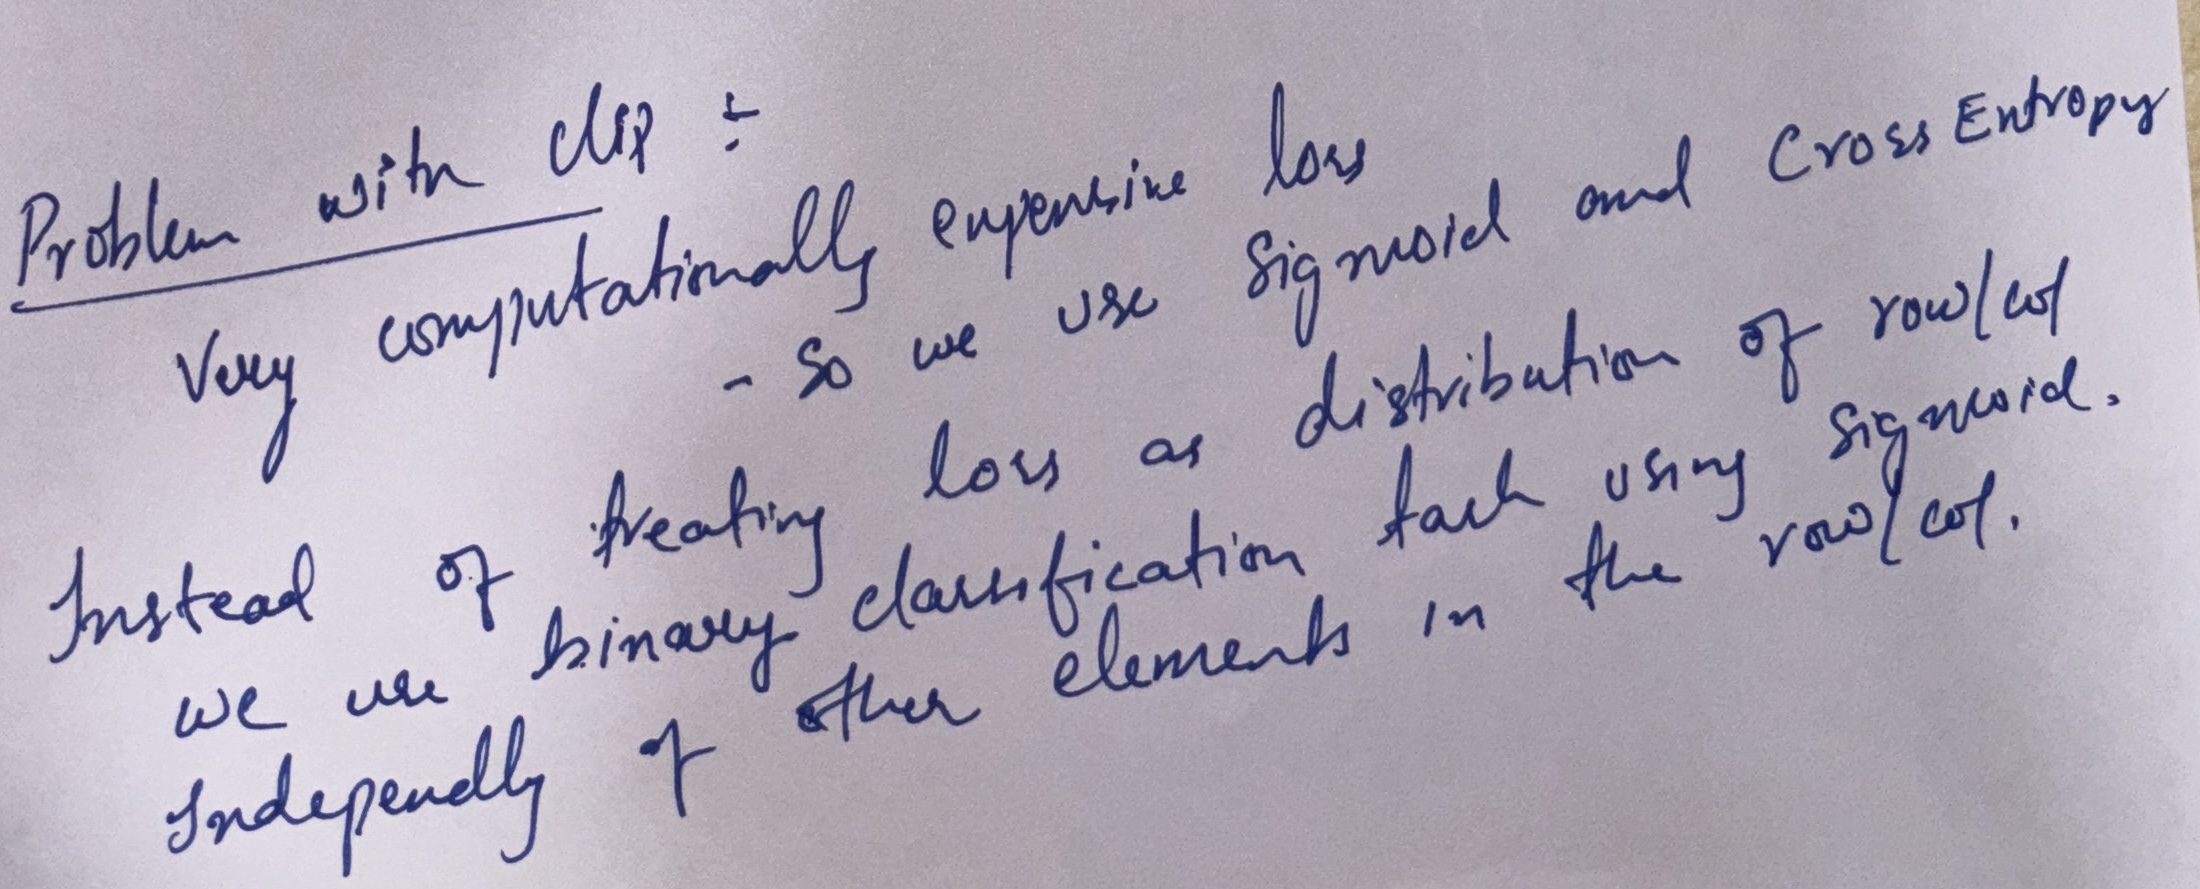 Problem with clip :-
Very computationally expensive loss
- So we use Sigmoid and Cross Entropy
Instead of treating loss as distribution of row/col
we use binary classification task using sigmoid.
Independly of other elements in the row/col.